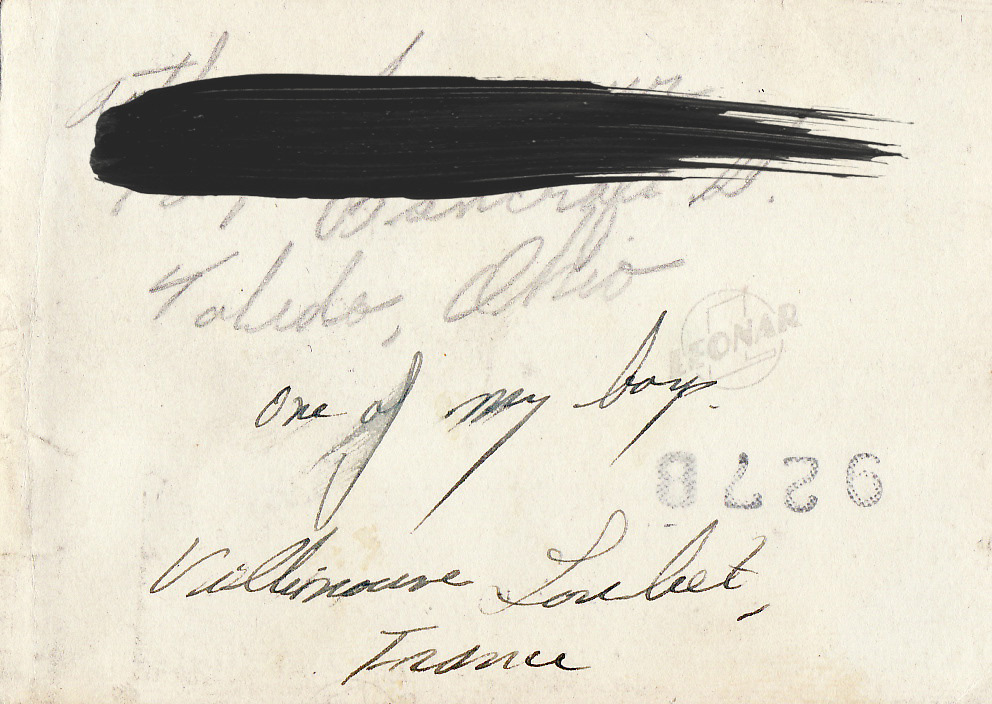 Bancroft St.
Toledo, Ohio
LEONAR
one of my boys.
9278
Villenouve Loubet,
France